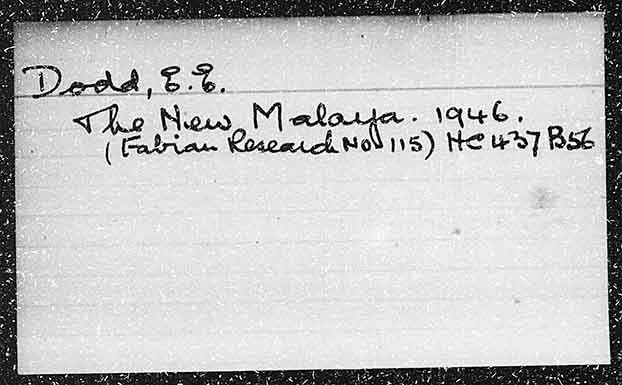 Dodd, E.E.
The New Malaya. 1946.
(Fabian Research No 115) HC 437 B56